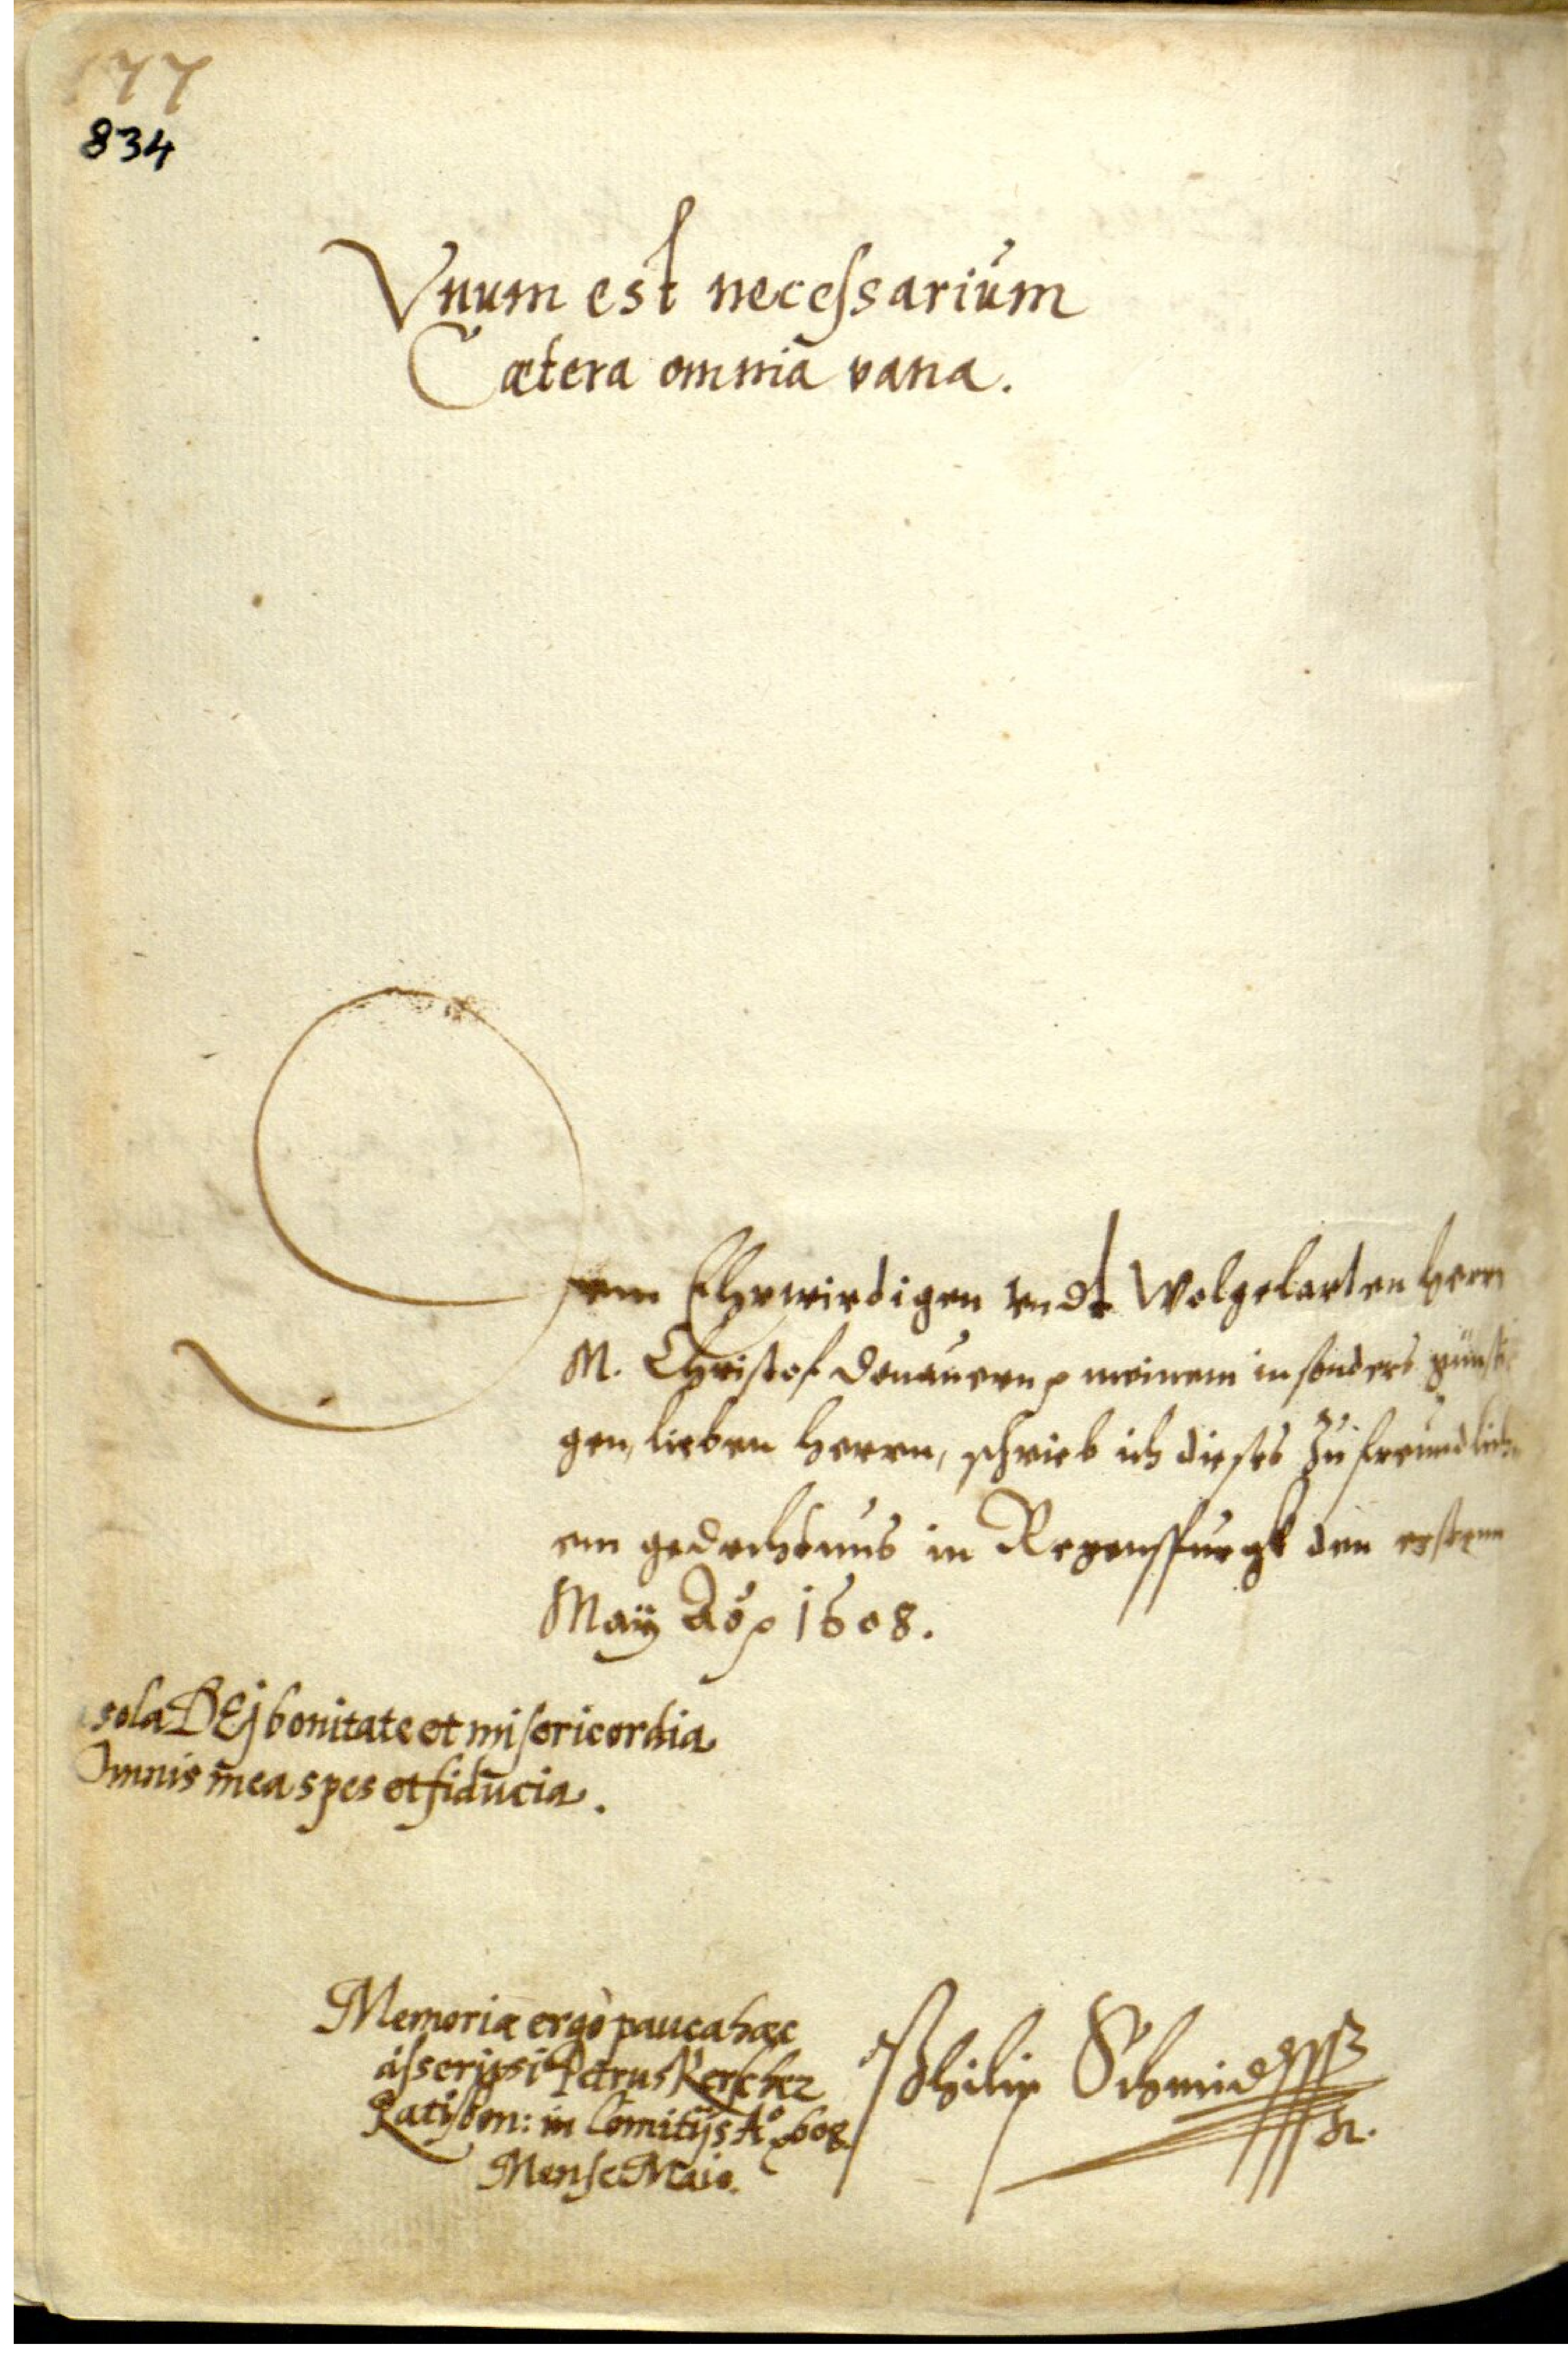 177
834
Vnum est necessarium
Cætera omnia vana.
Dem Ehrwirdigen vndt Wolgelarten herrn
M. Christof Donauern meinem insonders günsti
gen, lieben Herrn, schrieb ich dieses zu freundlich
em gedechtnus in Regenspurgk den ersten
Maÿ Ao 1608.
sola DEj bonitate et misericordia
Omnis mea spes et fiducia.
Memoriæ ergo pauca hæc
asscripsi Petrus Kerscher
Ratisbon: in Comitijs Ao 608.
Mense Maio.
Philip Schmid